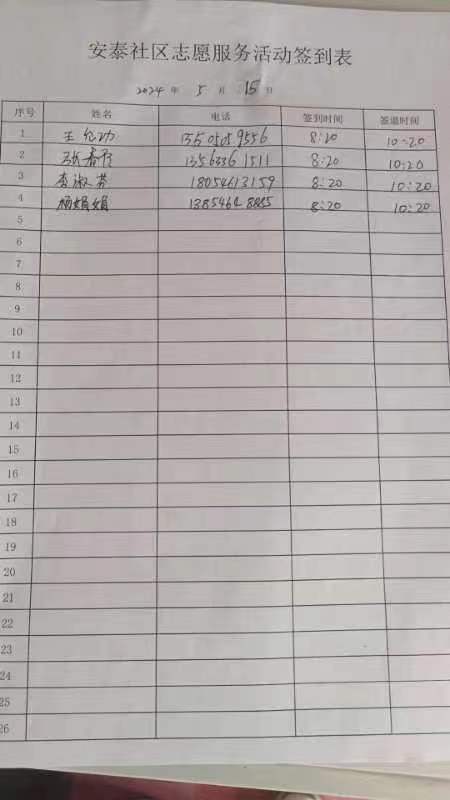 安泰社区志愿服务活动签到表
2024 年 5 月 15 日
序号 姓名 电话 签到时间 签退时间
1 王 功 8:20 10:20
2 张 13563361511 8:20 10:20
3 李淑芳 18054613159 8:20 10:20
4 杨娟娟 8:20 10:20
5
6
7
8
9
10
11
12
13
14
15
16
17
18
19
20
21
22
23
24
25
26